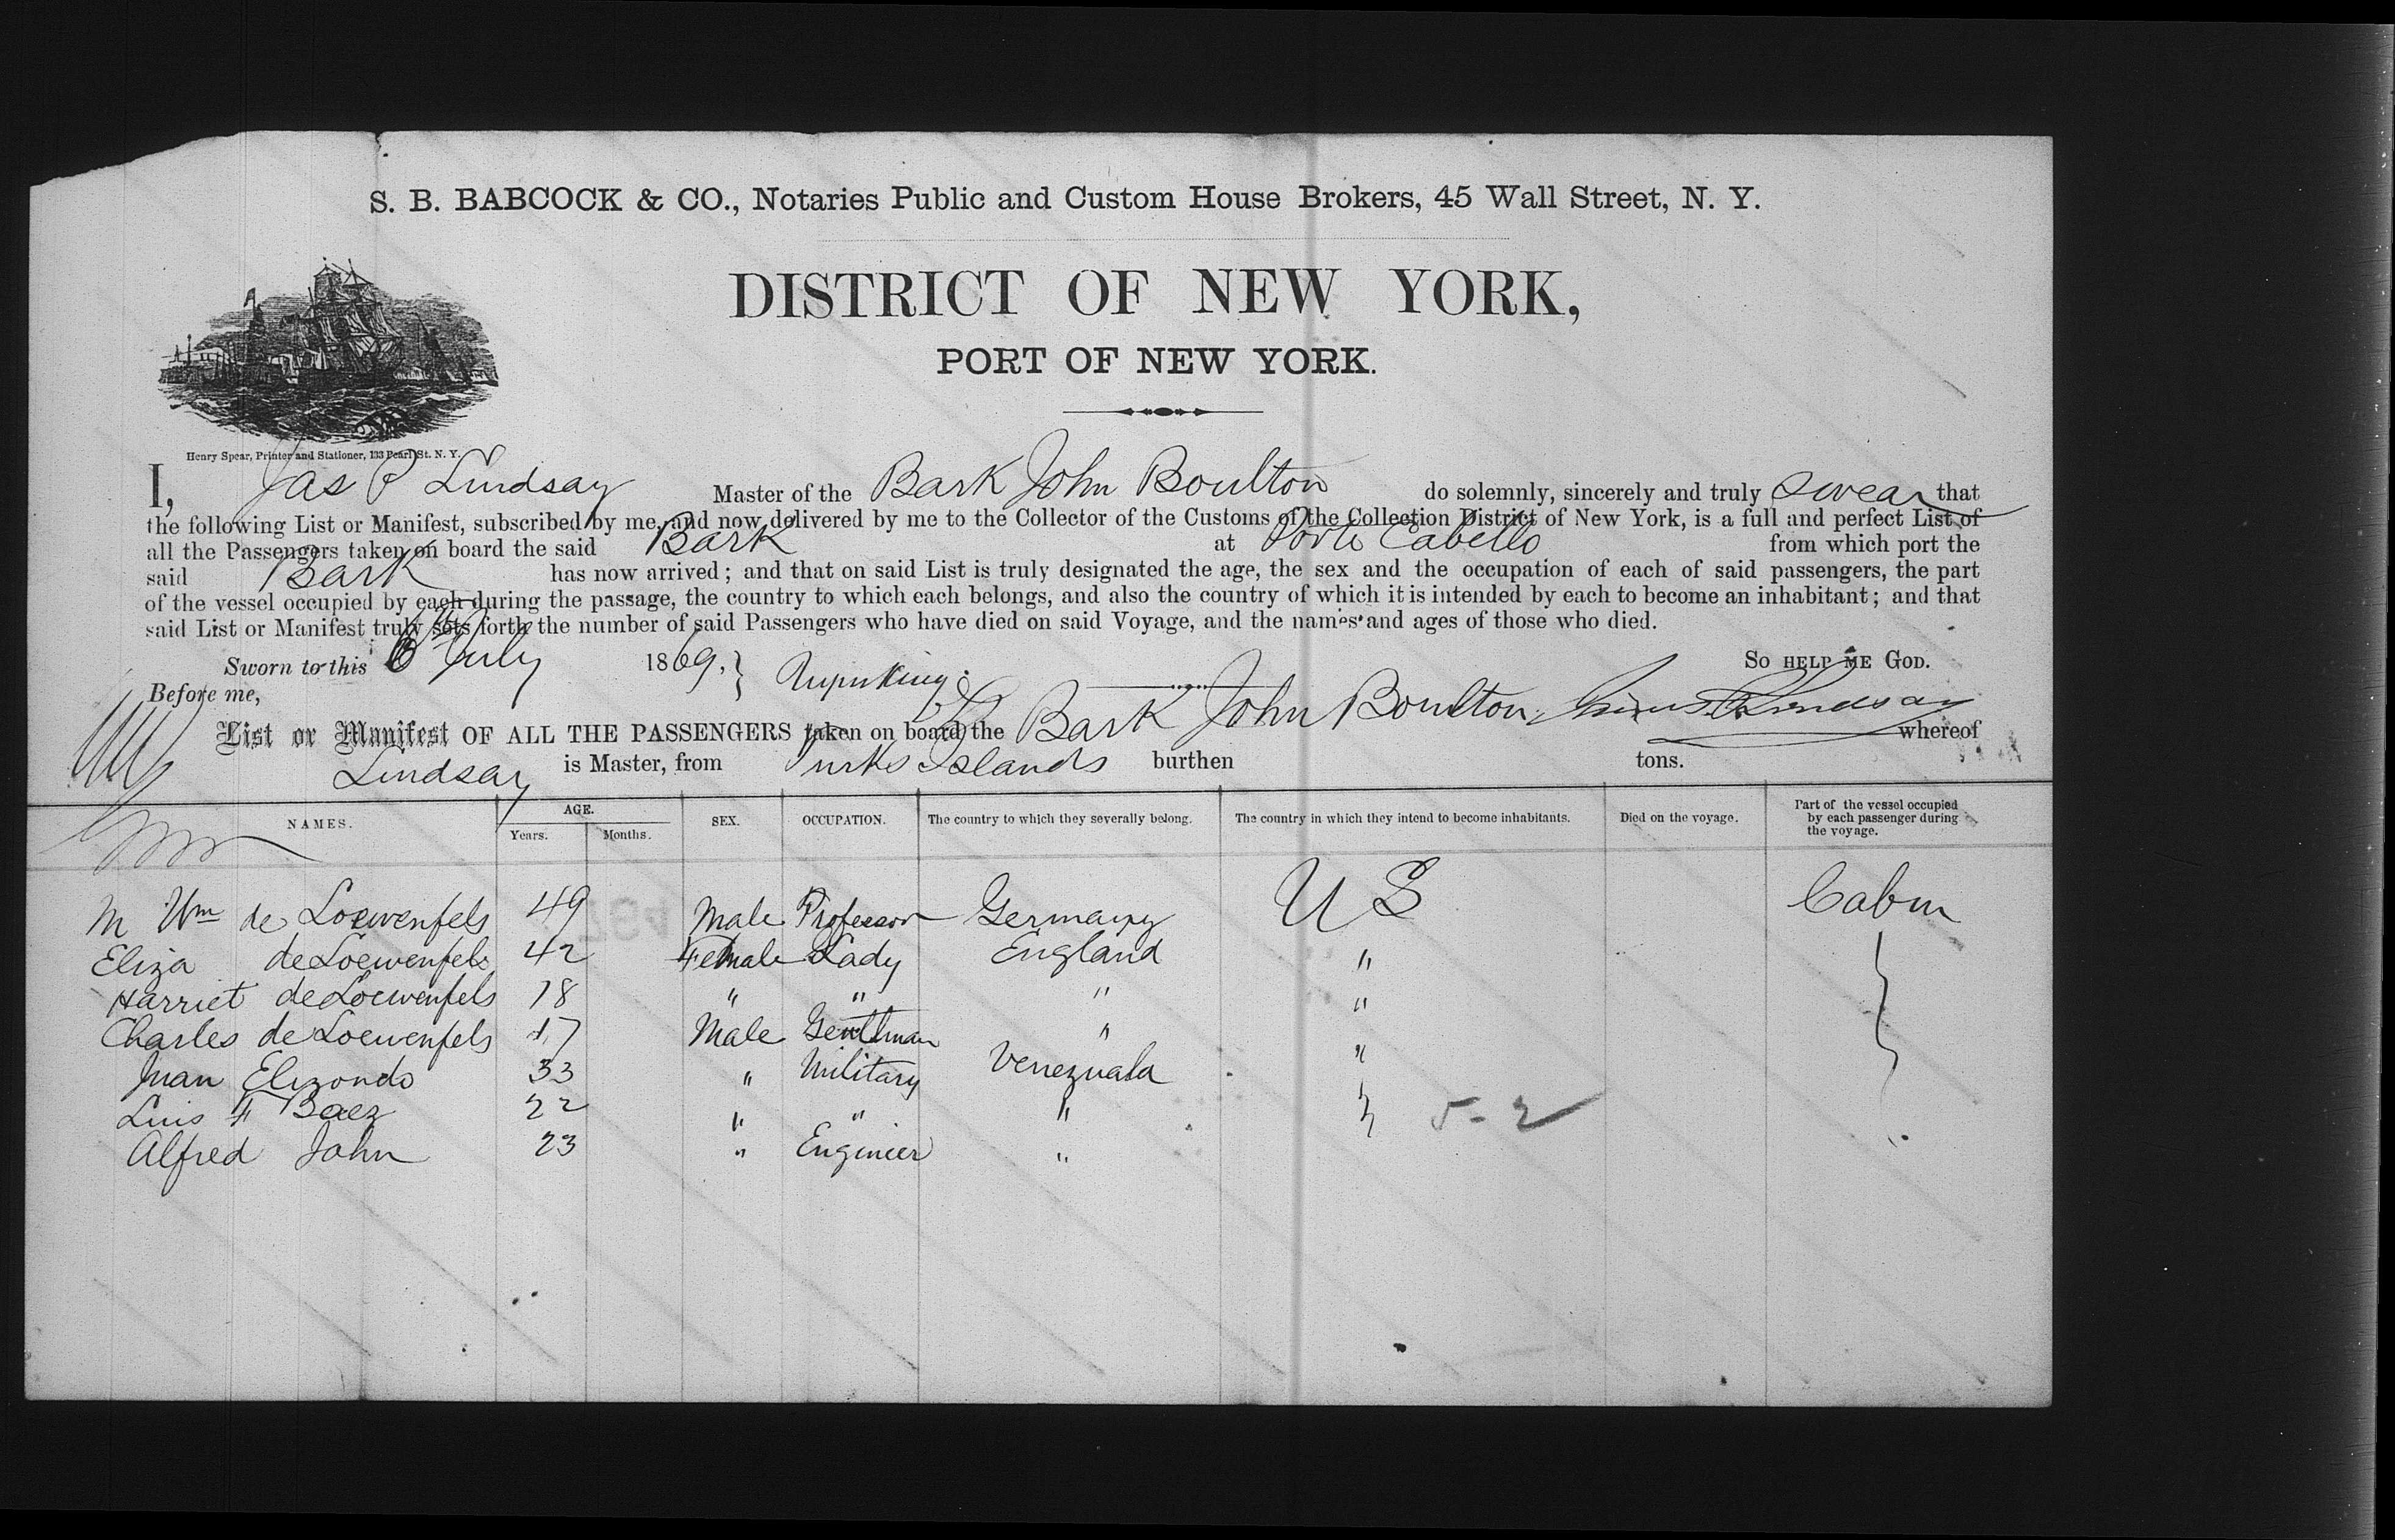 S. B. BABCOCK & CO., Notaries Public and Custom House Brokers, 45 Wall Street, N. Y.
DISTRICT OF NEW YORK,
PORT OF NEW YORK.
Henry Spear, Printer and Stationer, 133 Pearl St. N. Y.
I, Jas P Lindsay Master of the Bark John Boulton do solemnly, sincerely and truly swear that
the following List or Manifest, subscribed by me, and now delivered by me to the Collector of the Customs of the Collection District of New York, is a full and perfect List of
all the Passengers taken on board the said Bark at Porto Cabello from which port the
said Bark has now arrived; and that on said List is truly designated the age, the sex and the occupation of each of said passengers, the part
of the vessel occupied by each during the passage, the country to which each belongs, and also the country of which it is intended by each to become an inhabitant; and that
said List or Manifest truly sets forth the number of said Passengers who have died on said Voyage, and the names and ages of those who died.
Sworn to this 6 July 1869. So help me God.
Before me,
List or Manifest OF ALL THE PASSENGERS taken on board the Bark John Boulton Lindsay whereof
Lindsay is Master, from Turks Islands burthen tons.
NAMES. AGE. Years. Months. SEX. OCCUPATION. The country to which they severally belong. The country in which they intend to become inhabitants. Died on the voyage. Part of the vessel occupied by each passenger during the voyage.
M Wm de Loewenfels 49 Male Professor Germany U S Cabin
Eliza de Loewenfels 42 Female Lady England "
Harriet de Loewenfels 18 " " " "
Charles de Loewenfels 17 Male Gentlman " "
Juan Elizondo 33 " Military Venezuala
Luis F Baez 22 " " " 5-2
Alfred John 23 " Engineer "